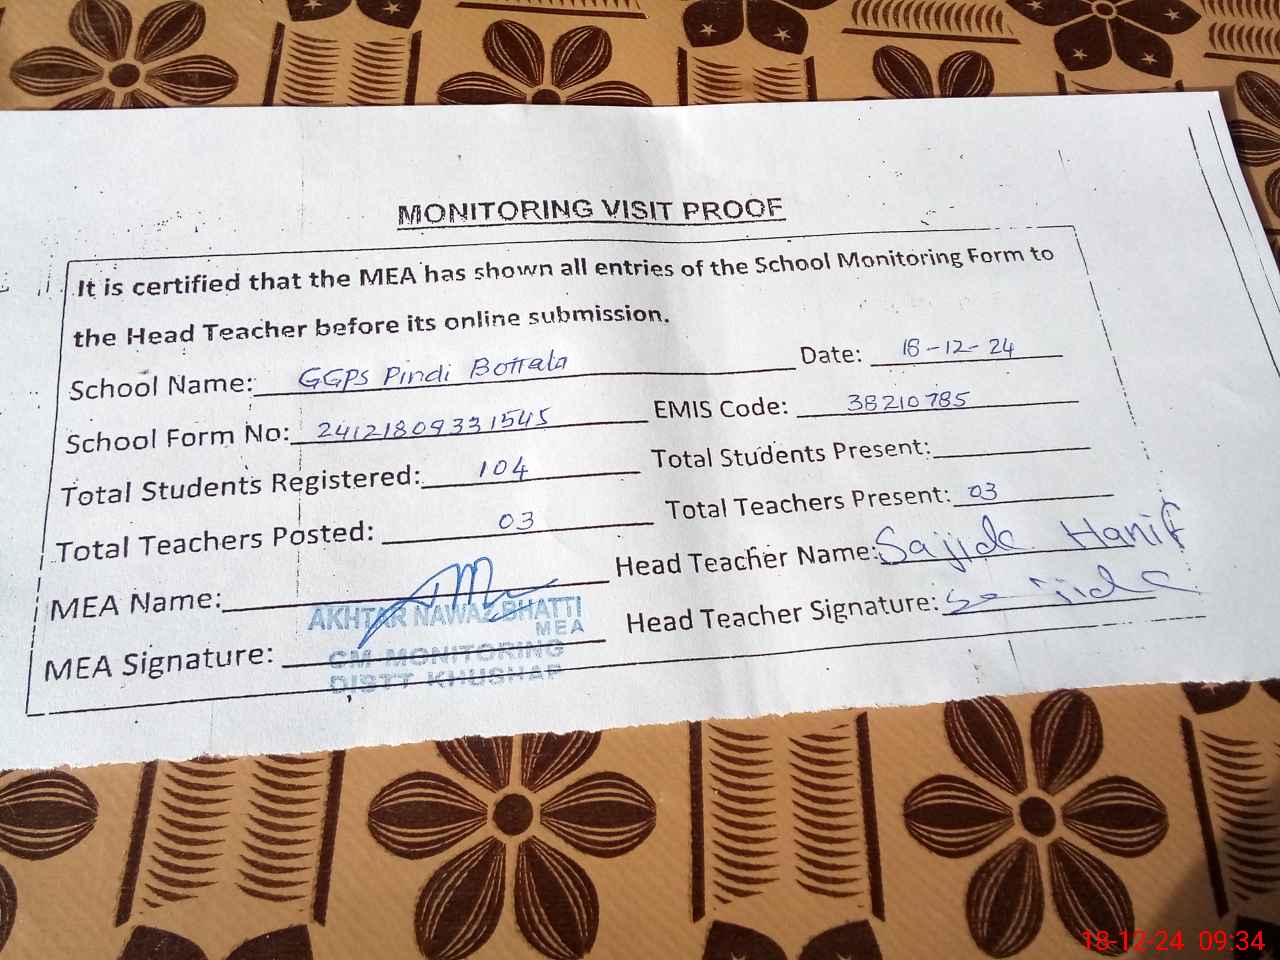 MONITORING VISIT PROOF
It is certified that the MEA has shown all entries of the School Monitoring Form to
the Head Teacher before its online submission.
School Name: GGPS Pindi Bottala Date: 18-12-24
School Form No: 24121809331545 EMIS Code: 38210785
Total Students Registered: 104 Total Students Present:
Total Teachers Posted: 03 Total Teachers Present: 03
MEA Name: Head Teacher Name: Sajida Hanif
AKHTAR NAWAZ BHATTI
MEA
MEA Signature: Head Teacher Signature: Sajida
CM MONITORING
DISTT KHUSHAP
18-12-24 09:34